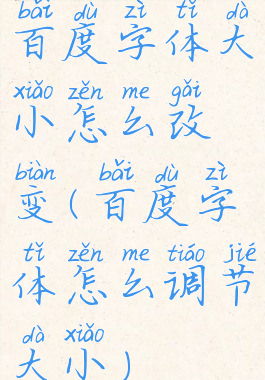 bǎi dù zì tǐ dà
百度字体大
xiǎo zěn me gǎi
小怎么改
biàn bǎi dù zì
变(百度字
tǐ zěn me tiáo jié
体怎么调节
dà xiǎo
大小)